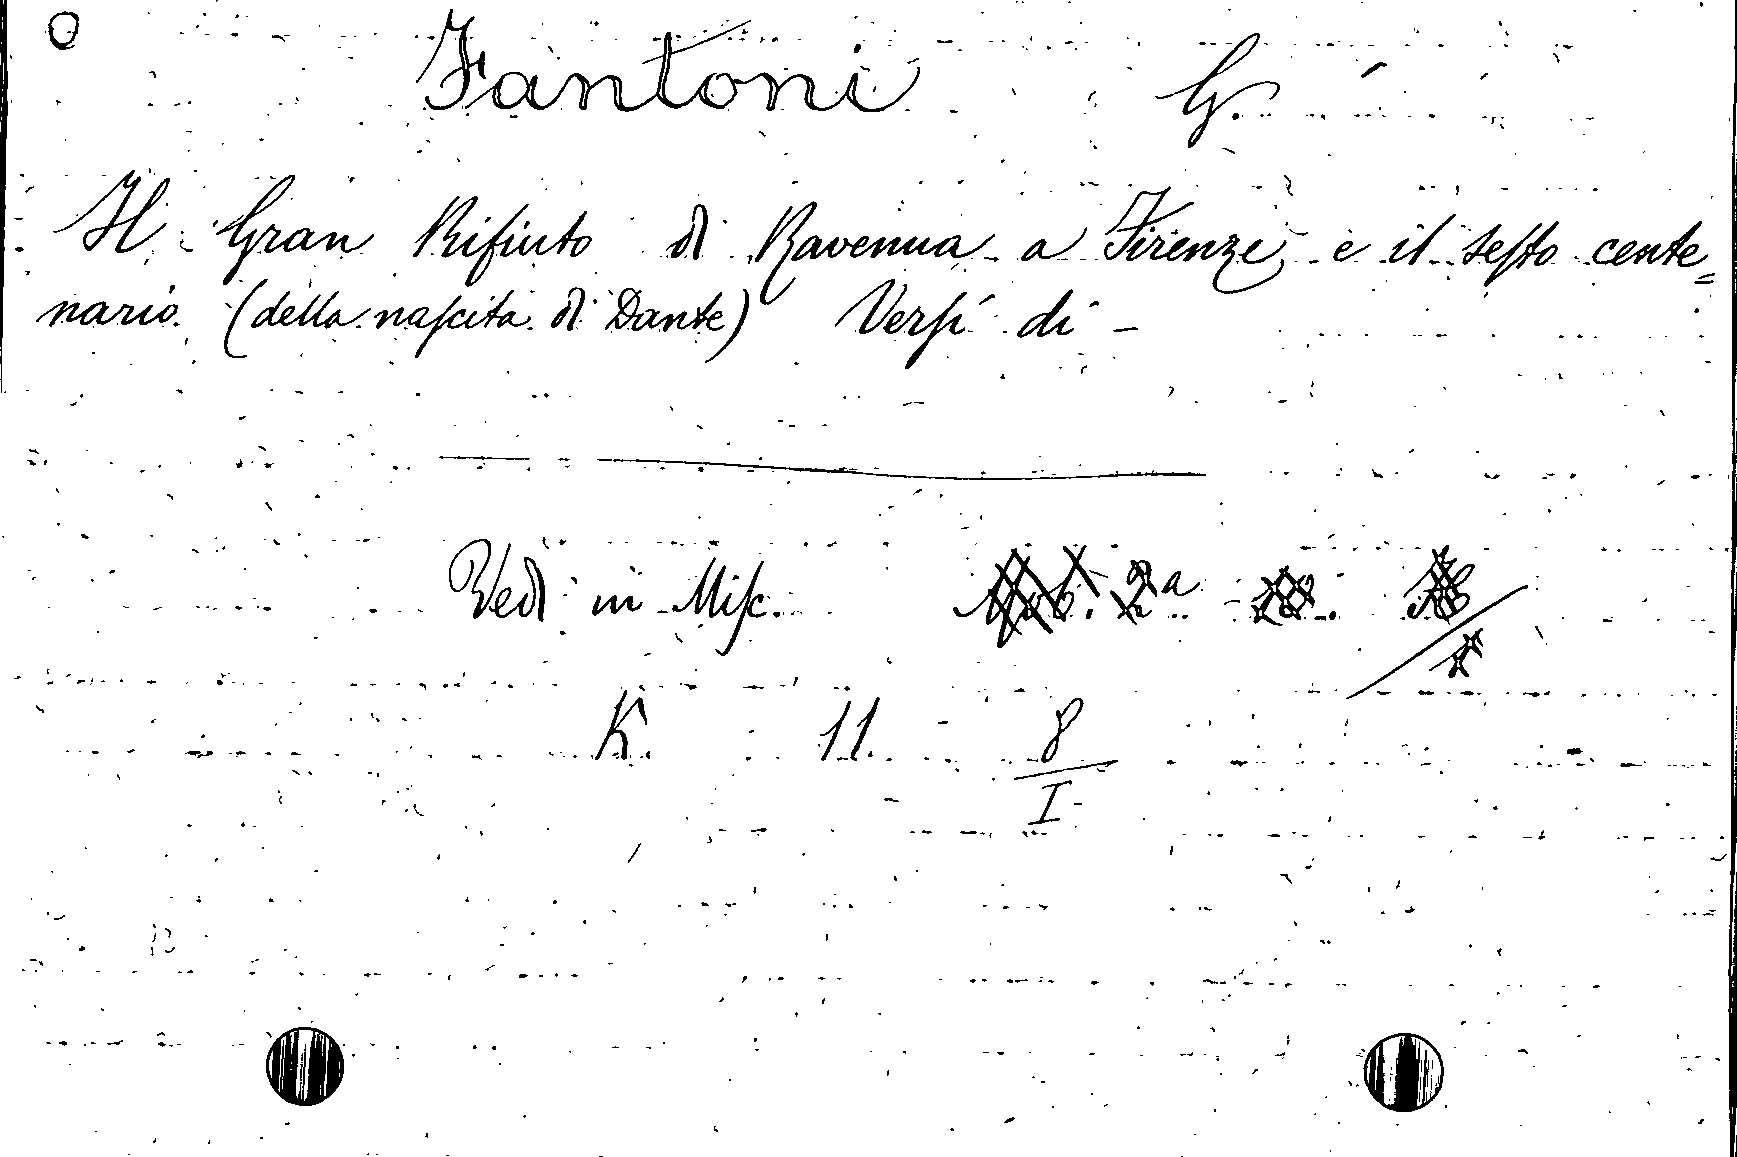 Fantoni G.
Il Gran Rifiuto di Ravenna a Firenze, e il sesto cente=
nario (della nascita di Dante) Versi di -
Vedi in Misc.
K. 11. 8
I